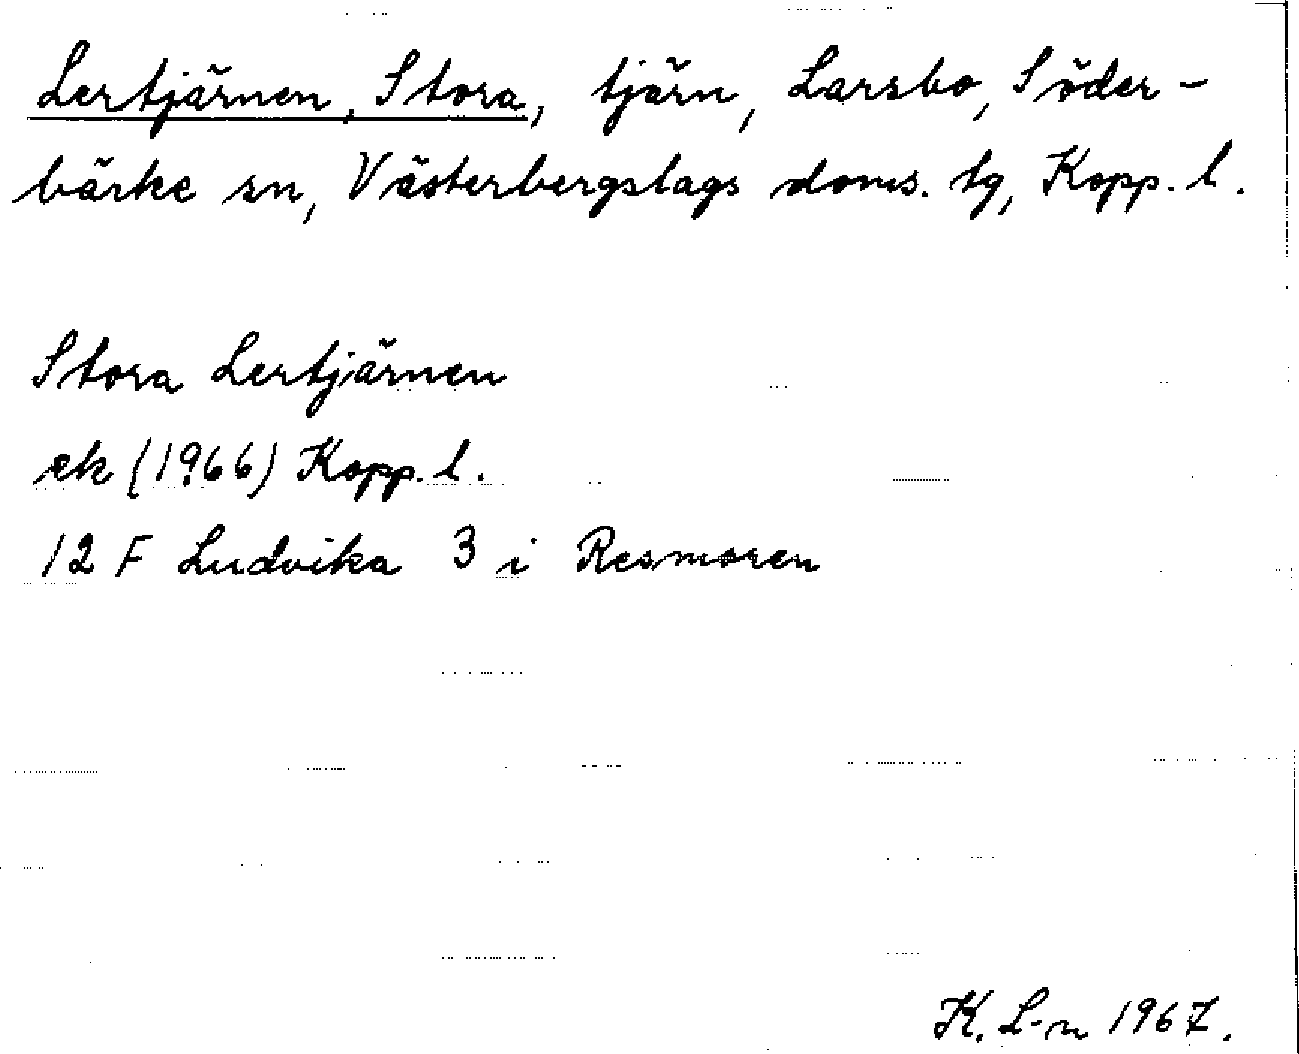 Lertjärnen, Stora, tjärn, Larsbo, Söder-
bärke sn, Västerbergslags doms. tg, Kopp. l.
Stora Lertjärnen
ek (1966) Kopp. l.
12 F Ludvika 3 i Resmoren
K. L-n 1967.